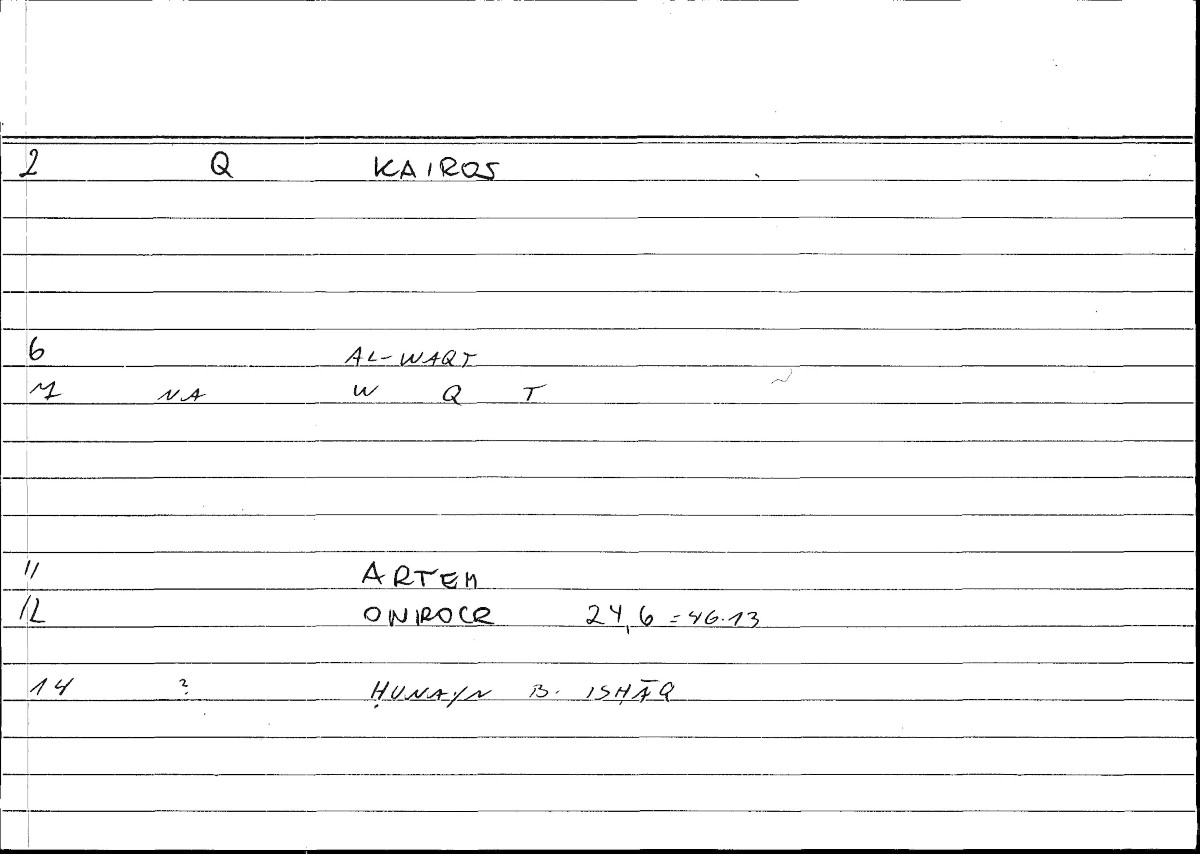 2 Q KAIROS
6 AL-WAQT
7 NA W Q T
11 ARTEM
12 ONIROCR 24,6 = 46.13
14 ? ḤUNAYN B. ISḤĀQ